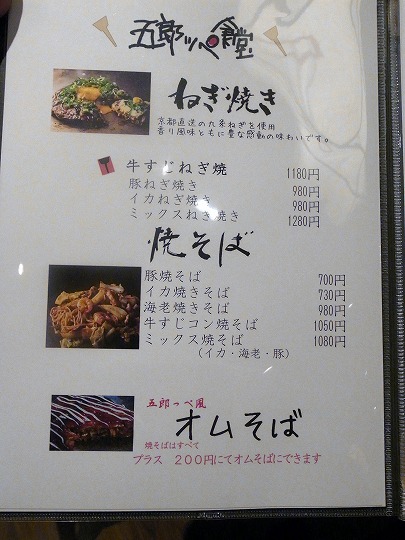 五郎ッペ食堂
ねぎ焼き
京都直送の九条ねぎを使用
香り風味ともに豊な感動の味わいです。
牛すじねぎ焼 1180円
豚ねぎ焼き 980円
イカねぎ焼き 980円
ミックスねぎ焼き 1280円
焼そば
豚焼そば 700円
イカ焼きそば 730円
海老焼きそば 980円
牛すじコン焼そば 1050円
ミックス焼そば 1080円
(イカ・海老・豚)
五郎っぺ風
オムそば
焼そばはすべて
プラス 200円にてオムそばにできます